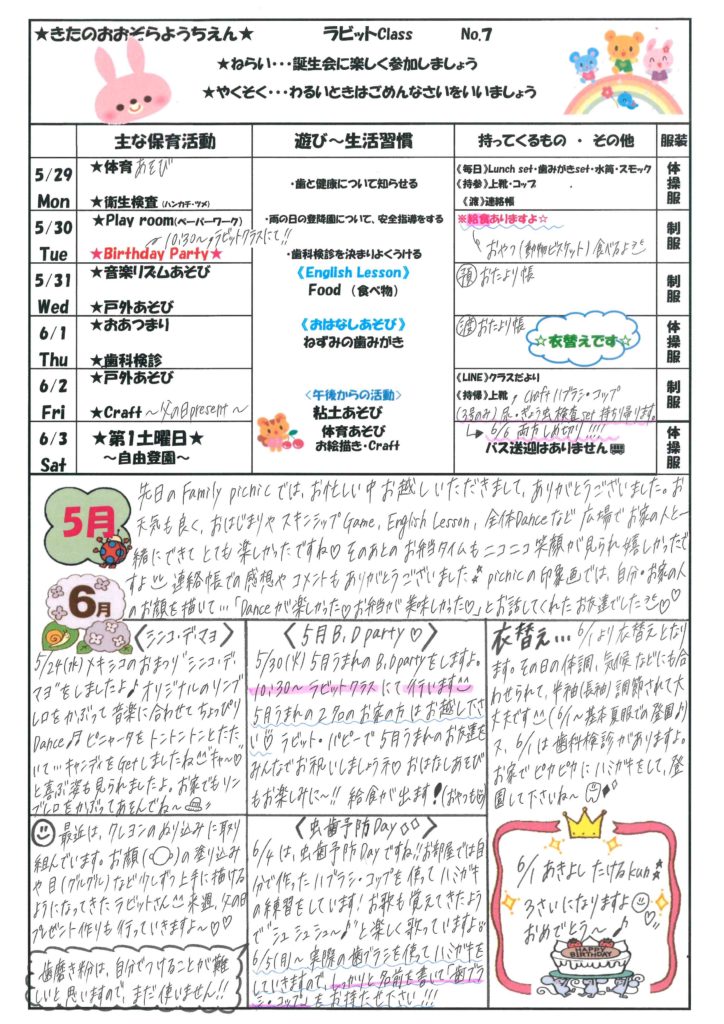 ★きたのおおぞらようちえん★ ラビットClass No.7
★ねらい・・・誕生会に楽しく参加しましょう
★やくそく・・・わるいときはごめんなさいをいいましょう
主な保育活動 遊び～生活習慣 持ってくるもの ・ その他 服装
5/29
Mon
★体育あそび
★衛生検査(ハンカチ・ツメ)
・歯と健康について知らせる
《毎日》Lunch set・歯みがきset・水筒・スモック
《持参》上靴・コップ
《渡》連絡帳
体操服
5/30
Tue
★Play room(ペーパーワーク)
10:30～ラビットクラスにて!!
★Birthday Party★
・雨の日の登降園について、安全指導をする
※給食ありますよ☆
おやつ(動物ビスケット)食べるよ
制服
5/31
Wed
★音楽リズムあそび
★戸外あそび
・歯科検診を決まりよくうける
《English Lesson》
Food (食べ物)
預 おたより帳
制服
6/1
Thu
★おあつまり
★歯科検診
《おはなしあそび》
ねずみの歯みがき
渡 おたより帳
☆衣替えです☆
体操服
6/2
Fri
★戸外あそび
★Craft ～父の日present～
<午後からの活動>
粘土あそび
体育あそび
お絵描き・Craft
《LINE》クラスだより
《持帰》上靴, Craft ハブラシ・コップ
(3号のみ) 尿・ぎょう虫検査set 持ち帰ります。
↳ 6/6 両方しめ切り!!!!
制服
6/3
Sat
★第1土曜日★
～自由登園～
バス送迎はありません
体操服
5月
6月
先日のFamily picnicでは、お忙しい中お越しいただきまして、ありがとうございました。お
天気も良く、おはじまりやスキンシップGame, English Lesson, 全体Danceなど広場でお家の人と一
緒にできてとても楽しかったですね♡そのあとのお弁当タイムもニコニコ笑顔が見られ嬉しかったで
すよ 連絡帳での感想やコメントもありがとうございました picnicの印象画では、自分・お家の人
のお顔を描いて…「Danceが楽しかった♡お弁当が美味しかった♡」とお話してくれたお友達でした♡♡
〈シンコ・デ・マヨ〉
5/24(水)メキシコのおまつり"シンコ・デ・
マヨ"をしましたよ♪オリジナルのソンブ
レロをかぶって音楽に合わせてちょっぴり
Dance♬ピニャータをトントントンとたた
いて…キャンディをGetしましたね "キャ～♡"
と喜ぶ姿も見られましたよ。お家でもソン
ブレロをかぶってあそんでね～
〈5月B.D party♡〉
5/30(火)5月うまれのB.Dpartyをしますよ。
10:30～ラビットクラスにて行います
5月うまれの2名のお家の方はお越し下さ
い♡ラビット・パピーで5月うまれのお友達を
みんなでお祝いしましょうネ♡おはなしあそび
もお楽しみに～!! 給食が出ます!(おやつも)
衣替え… 6/1より衣替えとなり
ます。その日の体調、気候などにも合
わせられて、半袖(長袖)調節されて大
丈夫です (6/1～基本夏服での登園♪)
ス、6/1は歯科検診がありますよ。
お家でピカピカにハミガキをして、登
園して下さいね～
最近は、クレヨンのぬり込みに取り
組んでいます。お顔( )の塗り込み
や目(グルグル)など少しずつ上手に描ける
ようになってきたラビットさん 来週、父の日
プレゼント作りも行っていきますよ～♡♡
歯磨き粉は、自分でつけることが難
しいと思いますので、まだ使いません!!
〈虫歯予防Day〉
6/4は、虫歯予防Dayですね!!お部屋では自
分で作ったハブラシ・コップを使ってハミガキ
の練習をしています!お歌も覚えてきたよう
で"シュシュシュ～♪"と楽しく歌っていますよ
6/5(月)～実際の歯ブラシを使ってハミガキを
していきますので、しっかりと名前を書いて「歯ブラ
シ・コップ」をお持たせください!!!
6/1 あきよし たけるkun
3さいになりますよ
おめでとう～♪
HAPPY BIRTHDAY